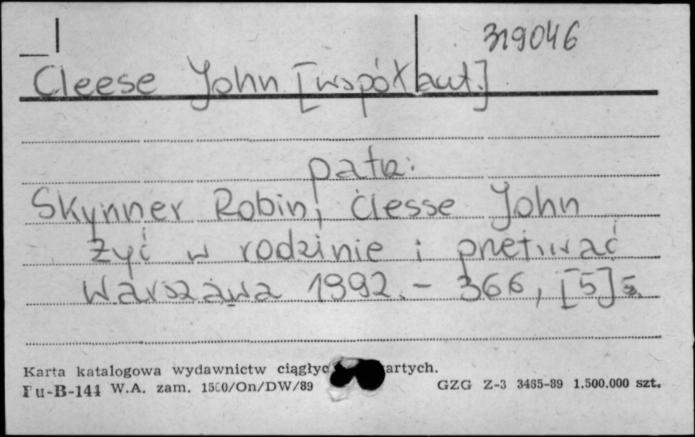 319046
Cleese John [współaut.]
patrz:
Skynner Robin, Clesse John
Żyć w rodzinie i przetrwać
Warszawa 1992. - 366, [5] s.
Karta katalogowa wydawnictw ciągłyc artych.
Pu-B-144 W.A. zam. 1500/On/DW/89 GZG Z-3 3465-89 1.500.000 szt.